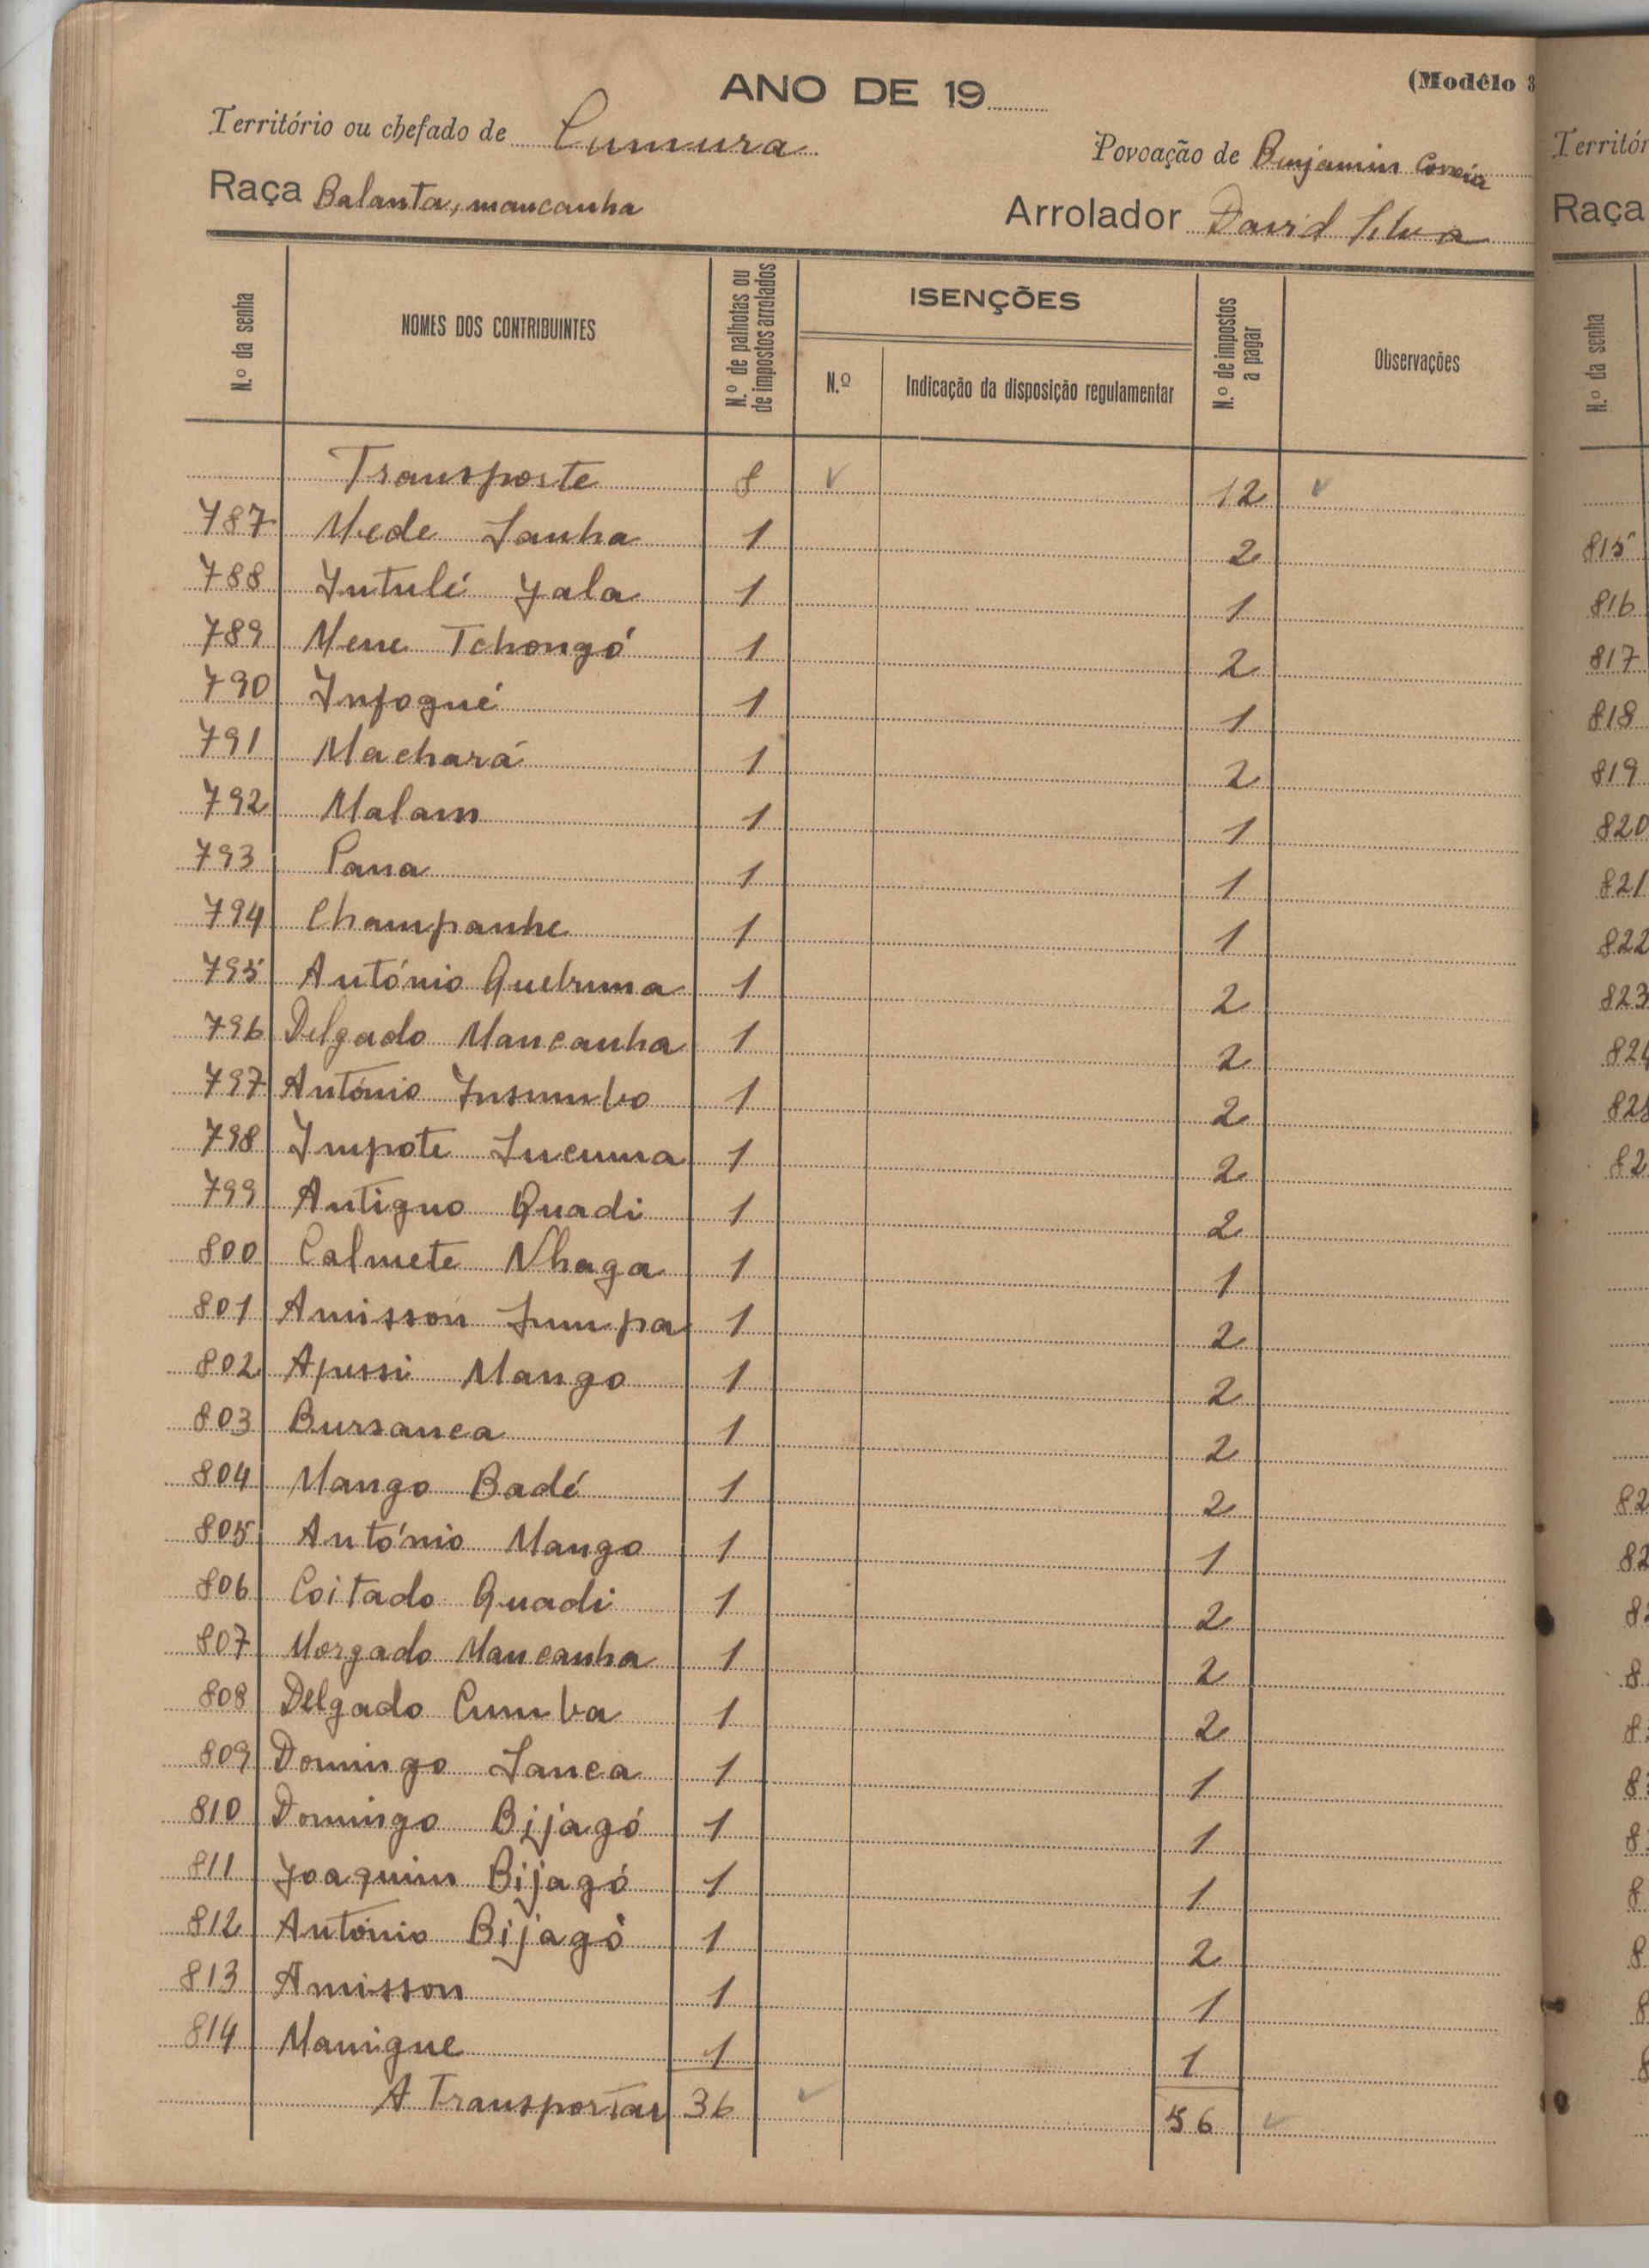 ANO DE 19
(Modêlo 3
Território ou chefado de Cumura
Povoação de Benjamim Correia
Raça Balanta, mancanha
Arrolador David Silva
N.º da senha
NOMES DOS CONTRIBUINTES
N.º de palhotas ou de impostos arrolados
ISENÇÕES
N.º
Indicação da disposição regulamentar
N.º de impostos a pagar
Observações
Transporte 8 12
787 Mede Sanha 1 2
788 Intulé Yala 1 1
789 Mene Tchongó 1 2
790 Infogué 1 1
791 Machará 1 2
792 Malam 1 1
793 Pana 1 1
794 Champanhe 1 1
795 António Quebruma 1 2
796 Delgado Mancanha 1 2
797 António Insumbo 1 2
798 Impote 1 2
799 Antiguo Quadi 1 2
800 Calmete Nhaga 1 1
801 Amisson Jumpa 1 2
802 Apessi Mango 1 2
803 Bursanca 1 2
804 Mango Badé 1 2
805 António Mango 1 1
806 Coitado Quadi 1 2
807 Morgado Mancanha 1 2
808 Delgado Cumba 1 2
809 Domingo Sanca 1 1
810 Domingo Bijagó 1 1
811 Joaquim Bijagó 1 1
812 António Bijagó 1 2
813 Amisson 1 1
814 Manigue 1 1
A Transportar 36 56
Territór
Raça
N.º da senha
815
816
817
818
819
820
821
822
823